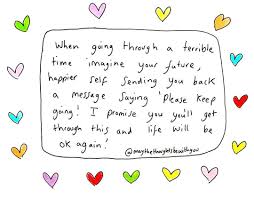 When going through a terrible
time imagine your future,
happier self sending you back
a message saying 'Please keep
going! I promise you you'll get
through this and life will be
ok again!'
@maythethoughtsbewithyou